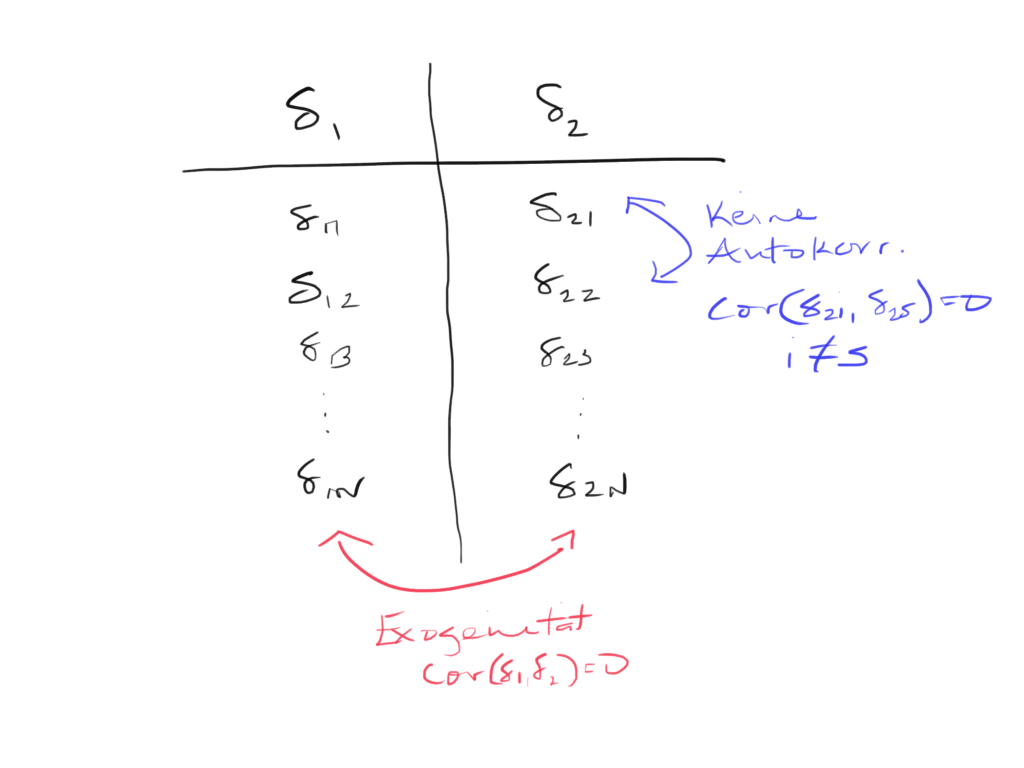 δ₁ δ₂
δ₁₁ δ₂₁
δ₁₂ δ₂₂
δ₁₃ δ₂₃
⋮ ⋮
δ₁ₙ δ₂ₙ
Keine
Autokorr.
cor(δ₂ᵢ, δ₂ₛ)=0
i≠s
Exogenität
cor(δ₁,δ₂)=0